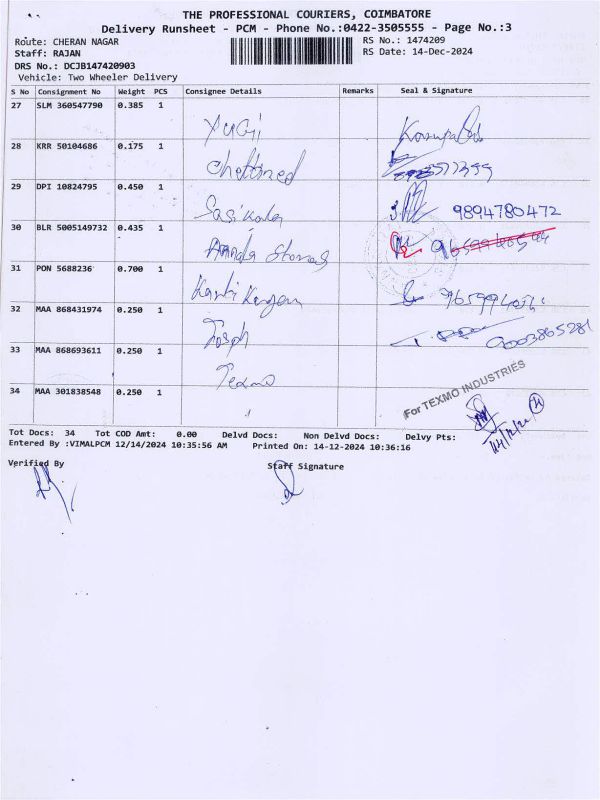 THE PROFESSIONAL COURIERS, COIMBATORE
Delivery Runsheet - PCM - Phone No.:0422-3505555 - Page No.:3
Route: CHERAN NAGAR
RS No.: 1474209
Staff: RAJAN
RS Date: 14-Dec-2024
DRS No.: DCJB147420903
Vehicle: Two Wheeler Delivery
S No Consignment No Weight PCS Consignee Details Remarks Seal & Signature
27 SLM 360547790 0.385 1
Yugi
28 KRR 50104686 0.175 1
29 DPI 10824795 0.450 1
Sasikala 9894780472
30 BLR 5005149732 0.435 1
Ananda Stores
31 PON 5688236 0.700 1
32 MAA 868431974 0.250 1
9003865281
33 MAA 868693611 0.250 1
Texmo
For TEXMO INDUSTRIES
34 MAA 301838548 0.250 1
14/12/24
Tot Docs: 34 Tot COD Amt: 0.00 Delvd Docs: Non Delvd Docs: Delvy Pts:
Entered By :VIMALPCM 12/14/2024 10:35:56 AM Printed On: 14-12-2024 10:36:16
Verified By Staff Signature